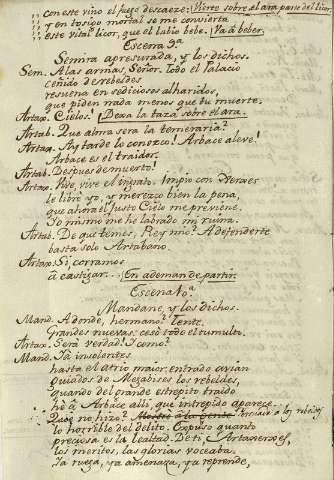 ,, con este vino el fuego descaeze: Vierte sobre el ara parte del licor.
,, y en tosigo mortal se me convierta
,, este vital licor, que el labio bebe. Va à beber.
Escena 9ª
Semira apresurada, y los dichos.
Sem. A las armas, Señor. Todo el Palacio
ceñido de rebeldes
resuena en sediciosos alharidos,
que piden nada menos que tu muerte.
Artax. Cielos! Dexa la taza sobre el ara.
Artab. Que alma sera la temeraria?
Artax. Ay tarde lo conozco! Arbace aleve!
Arbace es el traidor.
Artab. Despues de muerto!
Artax. Vive, vive el ingrato. Impio con Xerxes
le libré yo, y merezco bien la pena,
que ahora el Justo Cielo me previene.
Yo mismo me he labrado mi ruina.
Artab. De que temes, Rey mio? A defenderte
basta solo Artabano.
Artax. Si, corramos
à castigar... En ademan de partir.
Escena 10ª
Mandane, y los dichos.
Mand. A donde, hermano? Tente,
Grandes nuevas: cesó todo el tumulto.
Artax. Será verdad! I como?
Mand. Ya insolentes
hasta el atrio maior entrado avian
guiados de Megabises los rebeldes,
quando del grande estrepito traido
hé à Arbace alli, que intrepido aparece.
Que no hizo? Mostró à la gente
lo horrible del delito. Expuso quanto
precisa es la lealtad. De ti, Artaxerxes,
los meritos, las glorias voceaba.
Ya ruega, ya amenaza, ya reprende,